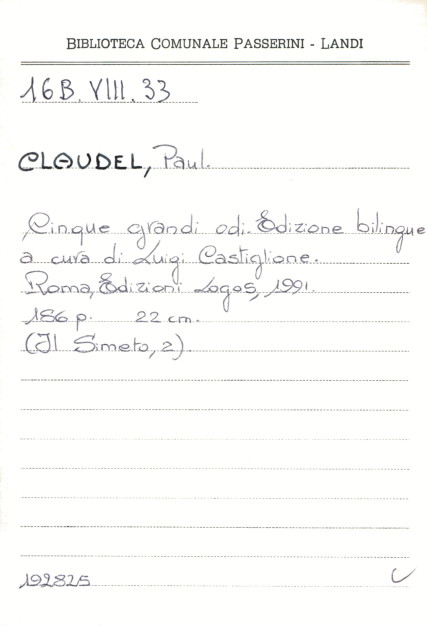 BIBLIOTECA COMUNALE PASSERINI - LANDI
16B.VIII.33
CLAUDEL, Paul.
Cinque grandi odi. Edizione bilingue
a cura di Luigi Castiglione.
Roma, Edizioni Logos, 1991.
186 p. 22 cm.
(Il Simeto, 2)
192825